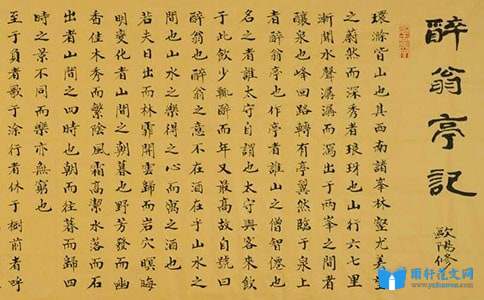 醉翁亭記
歐陽修
環滁皆山也其西南諸峯林壑尤美望
之蔚然而深秀者琅玡也山行六七里
漸聞水聲潺潺而瀉出于兩峯之間者
釀泉也峰回路轉有亭翼然臨于泉上
者醉翁亭也作亭者誰山之僧智僊也
名之者誰太守自謂也太守與客來飲
于此飲少輒醉而年又最高故自號曰
醉翁也醉翁之意不在酒在乎山水之
間也山水之樂得之心而寓之酒也
若夫日出而林霏開雲歸而岩穴暝晦
明變化者山間之朝暮也野芳發而幽
香佳木秀而繁陰風霜高潔水落而石
出者山間之四時也朝而往暮而歸四
時之景不同而樂亦無窮也
至于負者歌于塗行者休于樹前者呼
雨轩范文网